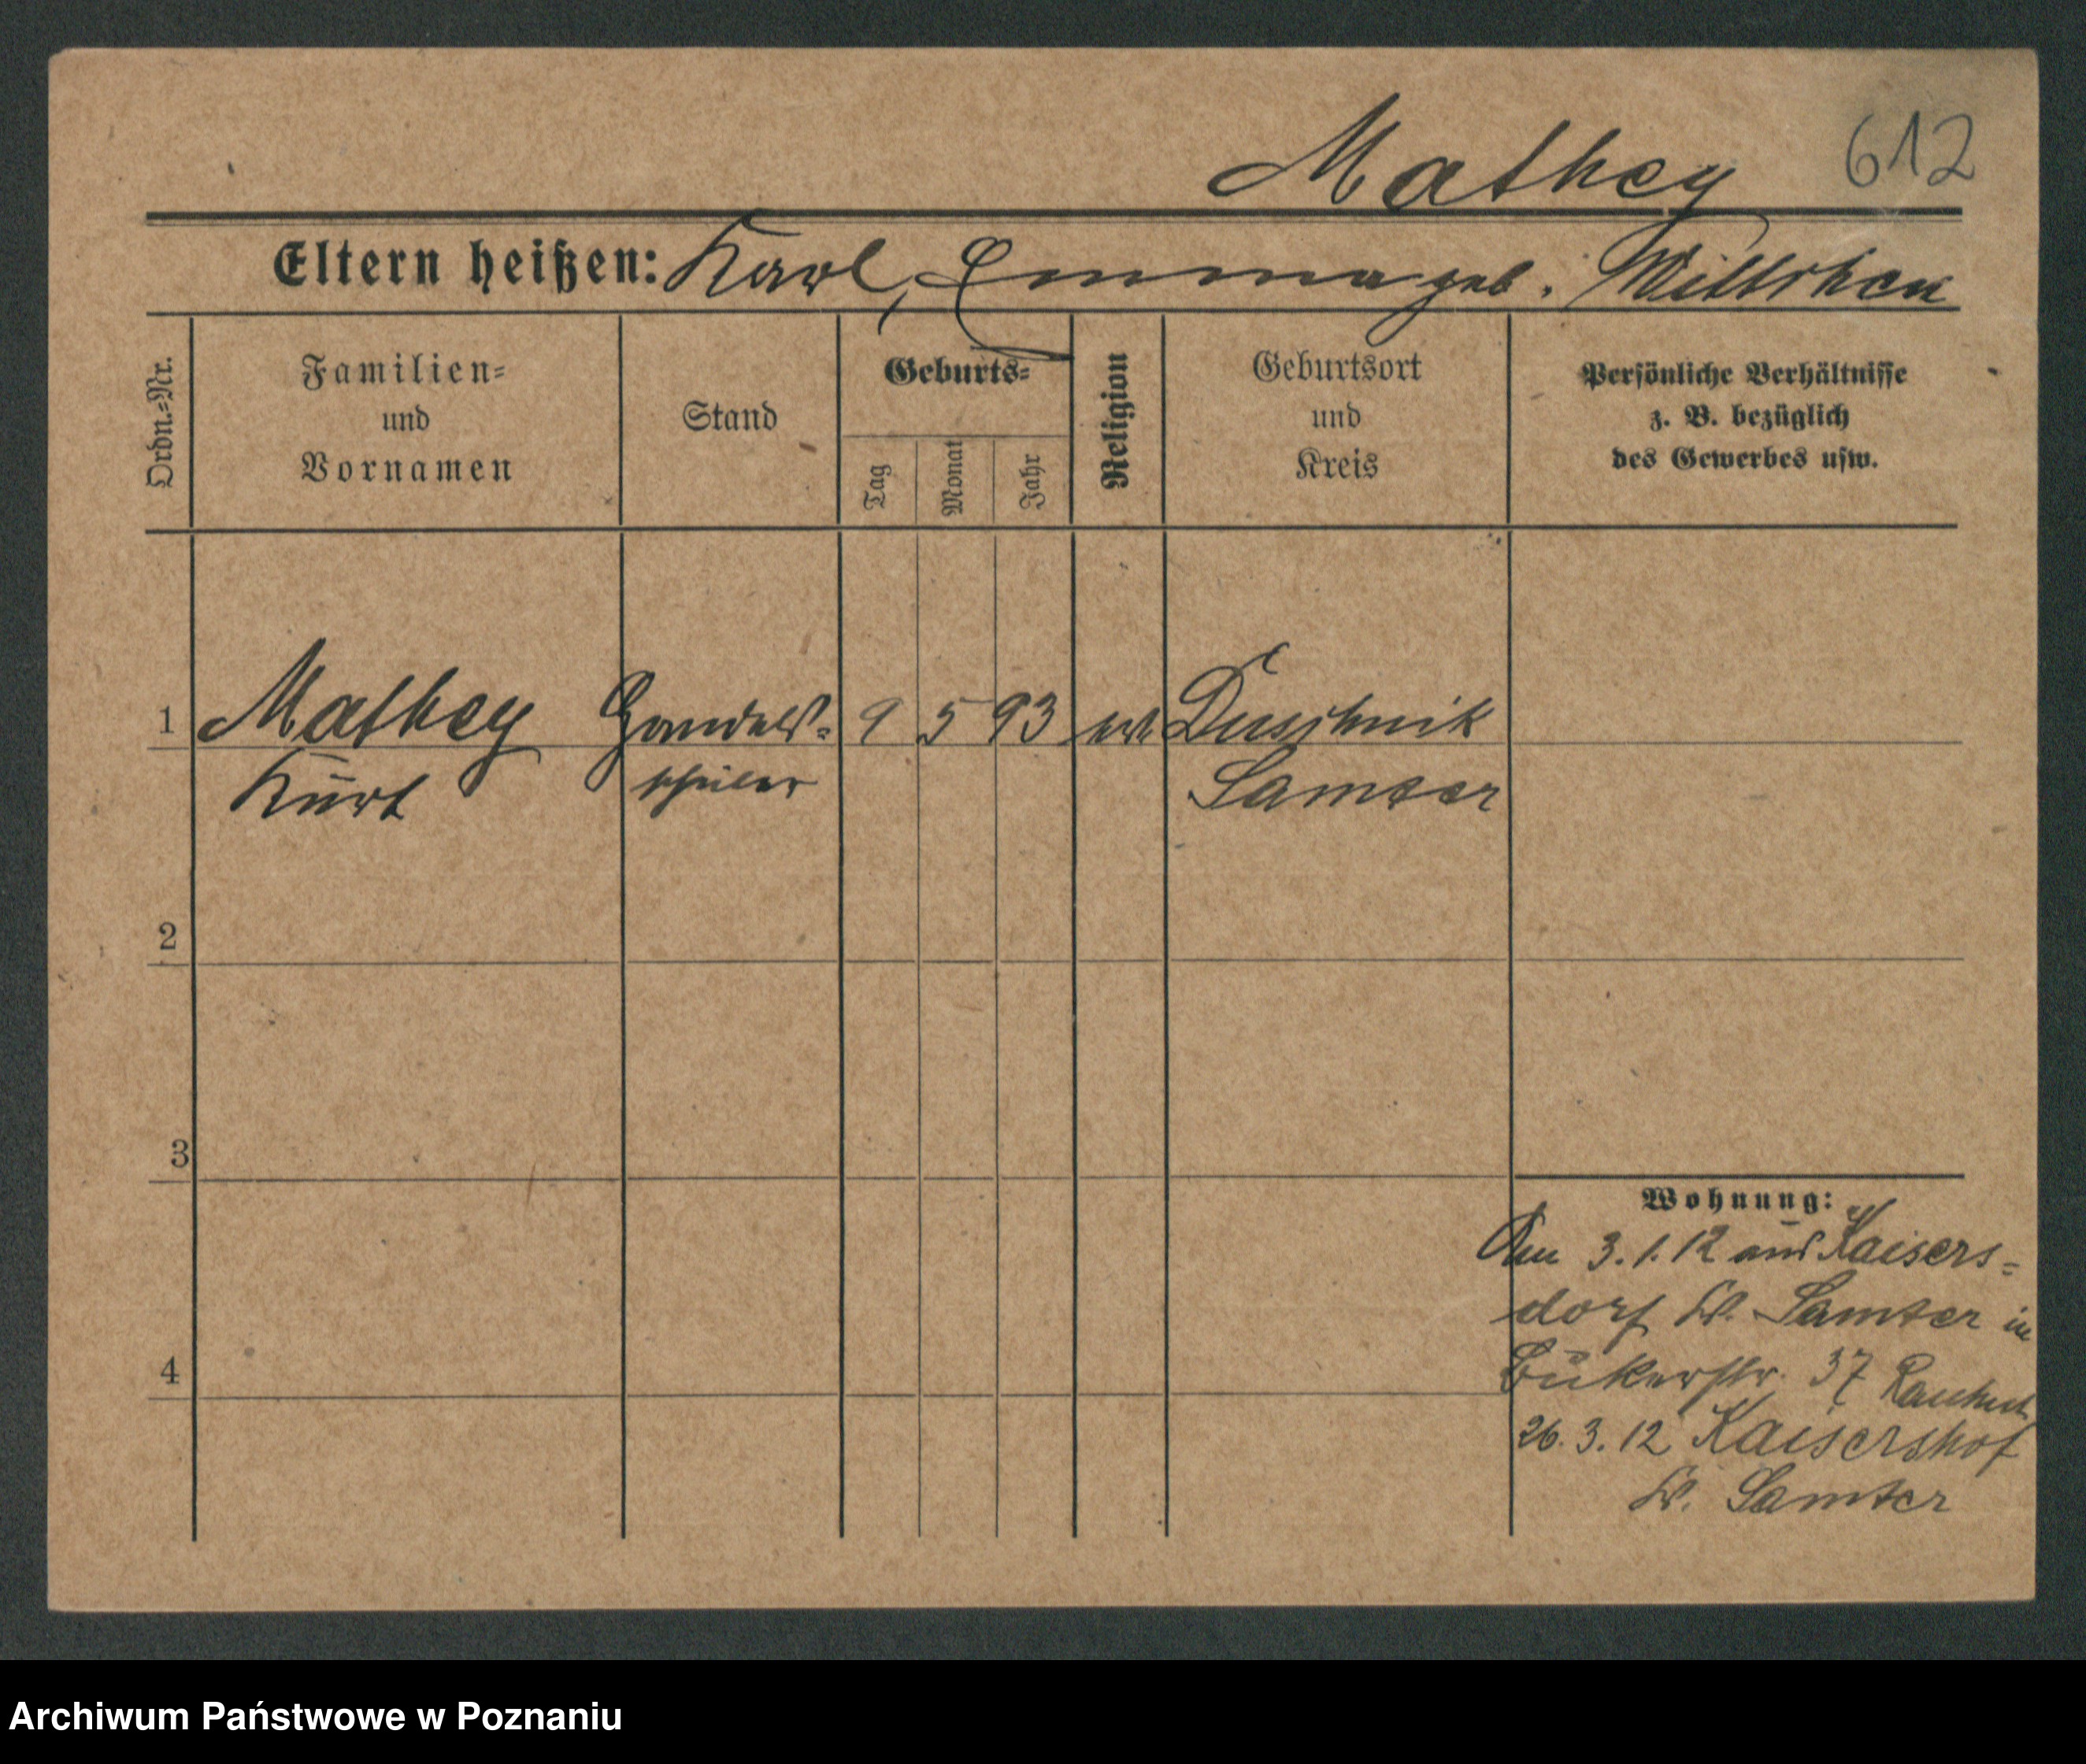 Mathey 612
Eltern heißen: Karl, Emma geb. Wittchen
Ordn.-Nr.
Familien-
und
Vornamen
Stand
Geburts-
Tag
Monat
Jahr
Religion
Geburtsort
und
Kreis
Persönliche Verhältnisse
z. B. bezüglich
des Gewerbes usw.
1 Mathey Handels- 9 5 93 Duschnik
Kurt schüler Samter
2
3
4
Wohnung:
Am 3.1.12 aus Kaisers-
dorf Kr. Samter in
Bukerstr. 37
26.3.12 Kaisershof
Kr. Samter
Archiwum Państwowe w Poznaniu